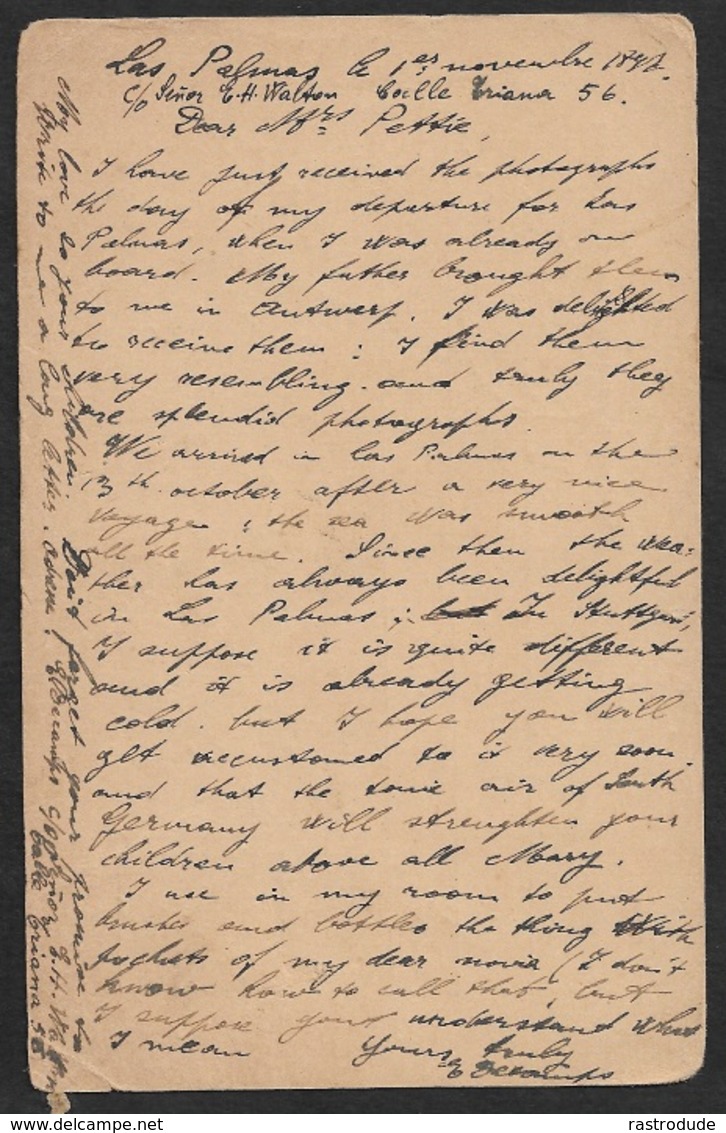 Las Palmas le 1er novembre 189
c/o Señor E. H. Walton Calle Triana 56.
Dear Mrs Pettie,
I have just received the photographs
the day of my departure for Las
Palmas, when I was already on
board. My father brought them
to me in Antwerp. I was delighted
to receive them : I find them
very resembling and truly they
are splendid photographs.
We arrived in Las Palmas on the
13th october after a very nice
voyage ; the sea was smooth
all the time. Since then the wea-
ther has always been delightful
in Las Palmas ; In Stuttgart,
I suppose it is quite different
and it is already getting
cold. but I hope you will
get accustomed to it very soon
and that the tonic air of South
Germany will strenghten your
children above all Mary.
I use in my room to put
brushes and bottles the thing with
pockets of my dear novia (I don't
know how to call that, but
I suppose you understand what
I mean Yours truly
E Decamps
My love to your children. Don't forget your promise to
write to me a long letter. Adress : E Decamps c/o Señor E. H. Walton
Calle Triana 56
rastrodude